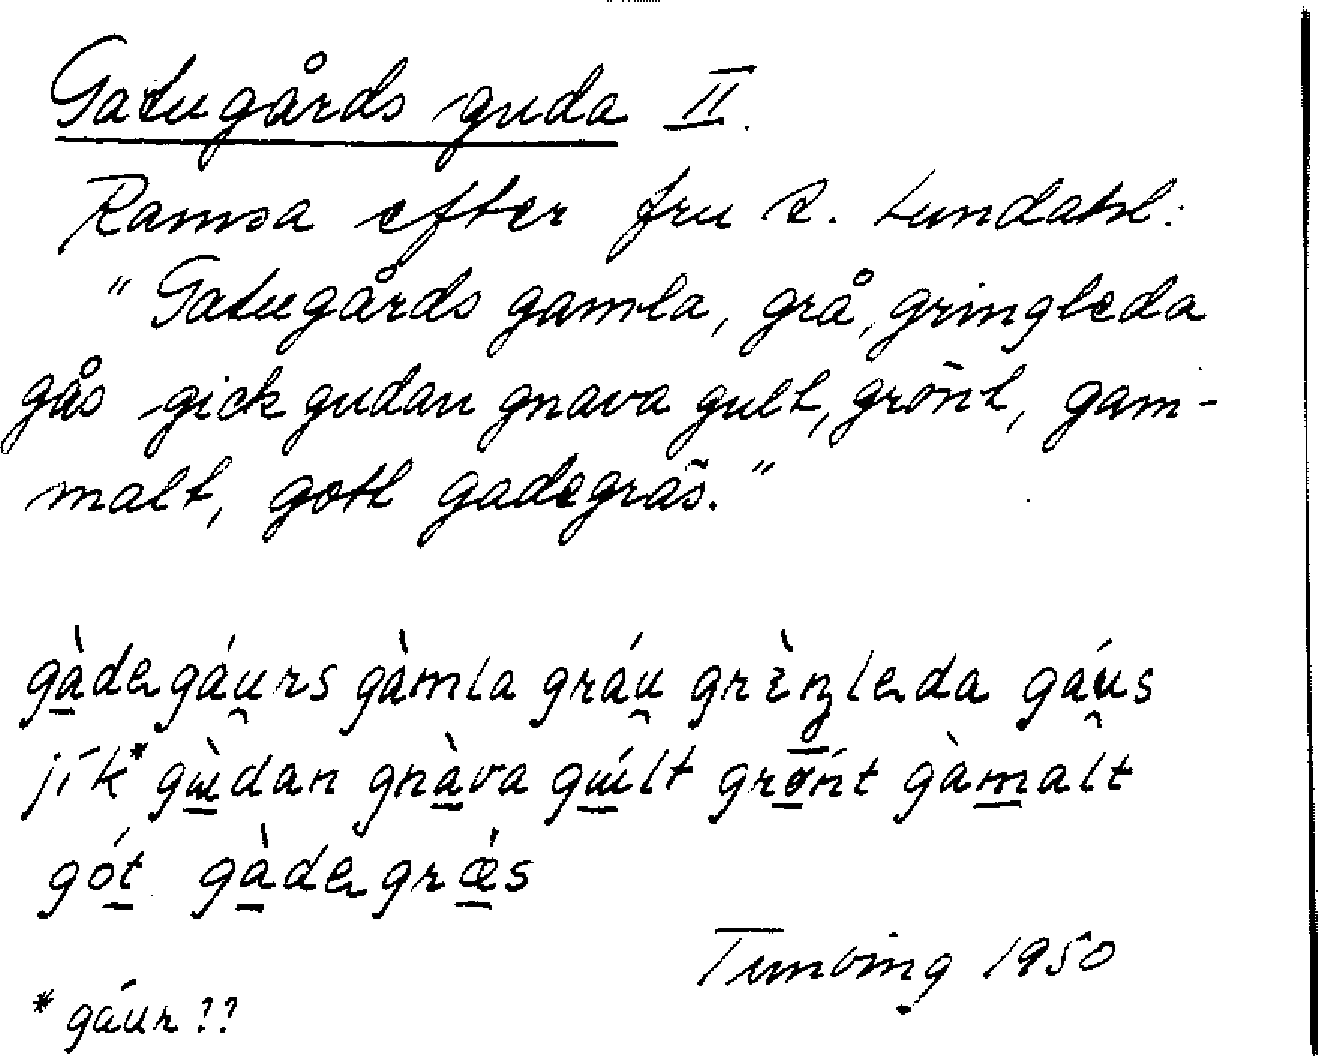 Gatugårds guda II.
Ramsa efter fru S. Lundahl:
"Gatugårds gamla, grå, gringleda
gås gick gudan gnava gult, grönt, gam-
malt, gott gadegräs."
gàdegáu̯rs gàmla gráu̯ grìŋleda gáu̯s
jík* gɯ̀dan gnàva gɯ́lt grǿnt gàmalt
gót gàdegrǽs
Tunving 1950
* gáur??